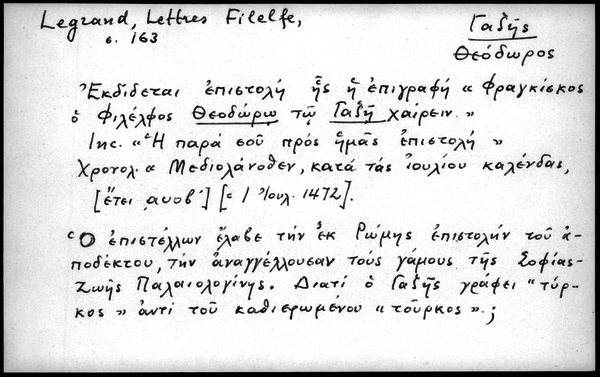 Legrand, Lettres Filelfe,
σ. 163
Γαδῆς
Θεόδωρος
Ἐκδίδεται ἐπιστολή ἧς ἡ ἐπιγραφή « Φραγκίσκος
ὁ Φιλέλφος Θεοδώρῳ τῷ Γαζῇ χαίρειν. »
Inc. « Ἡ παρά σοῦ πρός ἡμᾶς ἐπιστολή »
Χρονολ. « Μεδιολάνοθεν, κατά τάς ἰουλίου καλένδας,
[ἔτει ͵αυοβ´] [= 1 Ἰουλ. 1472].
Ὁ ἐπιστέλλων ἔλαβε τήν ἐκ Ρώμης ἐπιστολήν τοῦ ἀ-
ποδέκτου, τήν ἀναγγέλλουσαν τούς γάμους τῆς Σοφίας-
Ζωῆς Παλαιολογίνης. Διατί ὁ Γαζῆς γράφει "τύρ-
κος » ἀντί τοῦ καθιερωμένου « τοῦρκος ».;